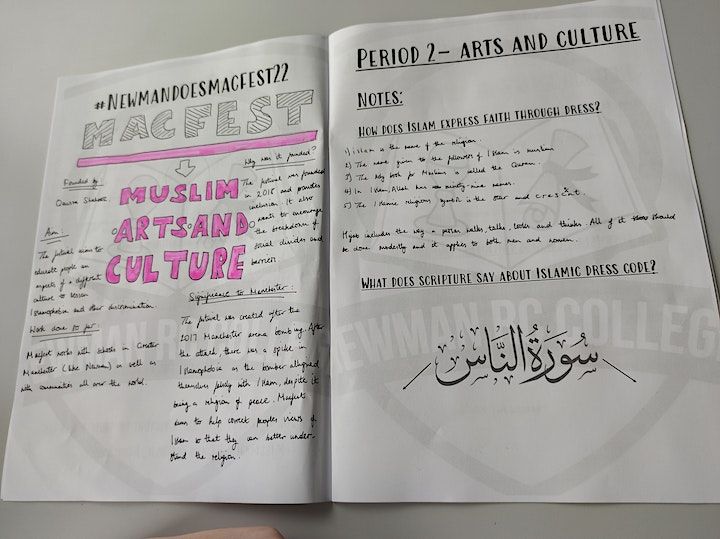 #NEWMANDOESMACFEST22
MACFEST
Founded by:
Qaisra Shahraz.
Aim:
The festival aims to
educate people on
aspects of a different
culture to lessen
Islamophobia and other discrimination.
Work done so far:
Macfest works with schools in Greater
Manchester (like Newman) as well as
with communities all over the world.
MUSLIM
ARTS AND
CULTURE
Why was it founded?
The festival was founded
in 2018 and promotes
inclusion. It also
wants to encourage
the breakdown of
social divides and
barriers.
Significance to Manchester:
The festival was created after the
2017 Manchester arena bombing. After
the attack, there was a spike in
Islamophobia as the bomber alligned
themselves falsely with Islam, despite it
being a religion of peace. Macfests
aim to help correct peoples views of
Islam so that they can better under-
stand the religion.
PERIOD 2- ARTS AND CULTURE
NOTES:
HOW DOES ISLAM EXPRESS FAITH THROUGH DRESS?
1) islam is the name of the religion.
2) The name given to the followers of Islam is muslim
3) The holy book for Muslims is called the Quran.
4) In Islam, Allah has ninety-nine names.
5) The Islamic religious symbol is the star and crescent.
Hijab includes the way a person walks, talks, looks and thinks. All of it should
be done modestly and it applies to both men and women.
WHAT DOES SCRIPTURE SAY ABOUT ISLAMIC DRESS CODE?
سُورَةُ النَّاسِ
NEWMAN RC COLLEG